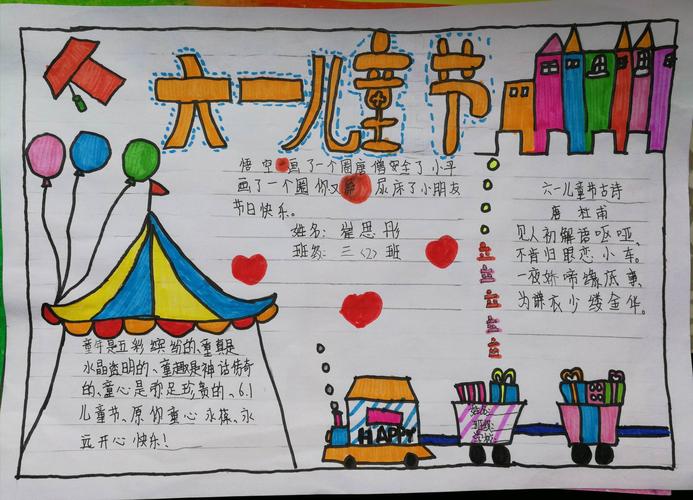 六一儿童节
悟空画了一个圈唐僧安全了小平
画了一个圈你又尿床了小朋友
节日快乐。
姓名:崔思彤
班级:三〈2〉班
六一儿童节古诗
唐 杜甫
见人初解语呕哑、
不肯归眠恋小车。
一夜娇啼缘底事、
为嫌衣少缕金华。
童年是五彩缤纷的、童真是
水晶透明的、童趣是神话传奇
的、童心是弥足珍贵的、6.1
儿童节、原你童心永葆、永
远开心快乐!
HAPPY